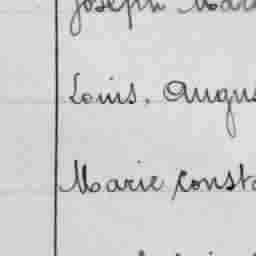 Joseph Mar
Louis. Augus
Marie Const